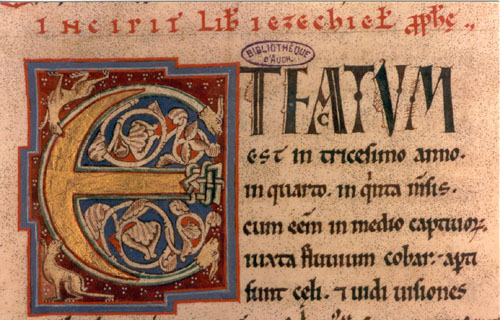 INCIPIT LIB̄ IEZECHIEL̄ PP̄HE
BIBLIOTHÈQUE
D'AUCH.
ET FACTVM
est in tricesimo anno.
in quarto. in qͥnta m̄sis.
cum eēm in medio captiuoꝝ
iuxta fluuium cobar. apti
sunt celi. ⁊ uidi uisiones